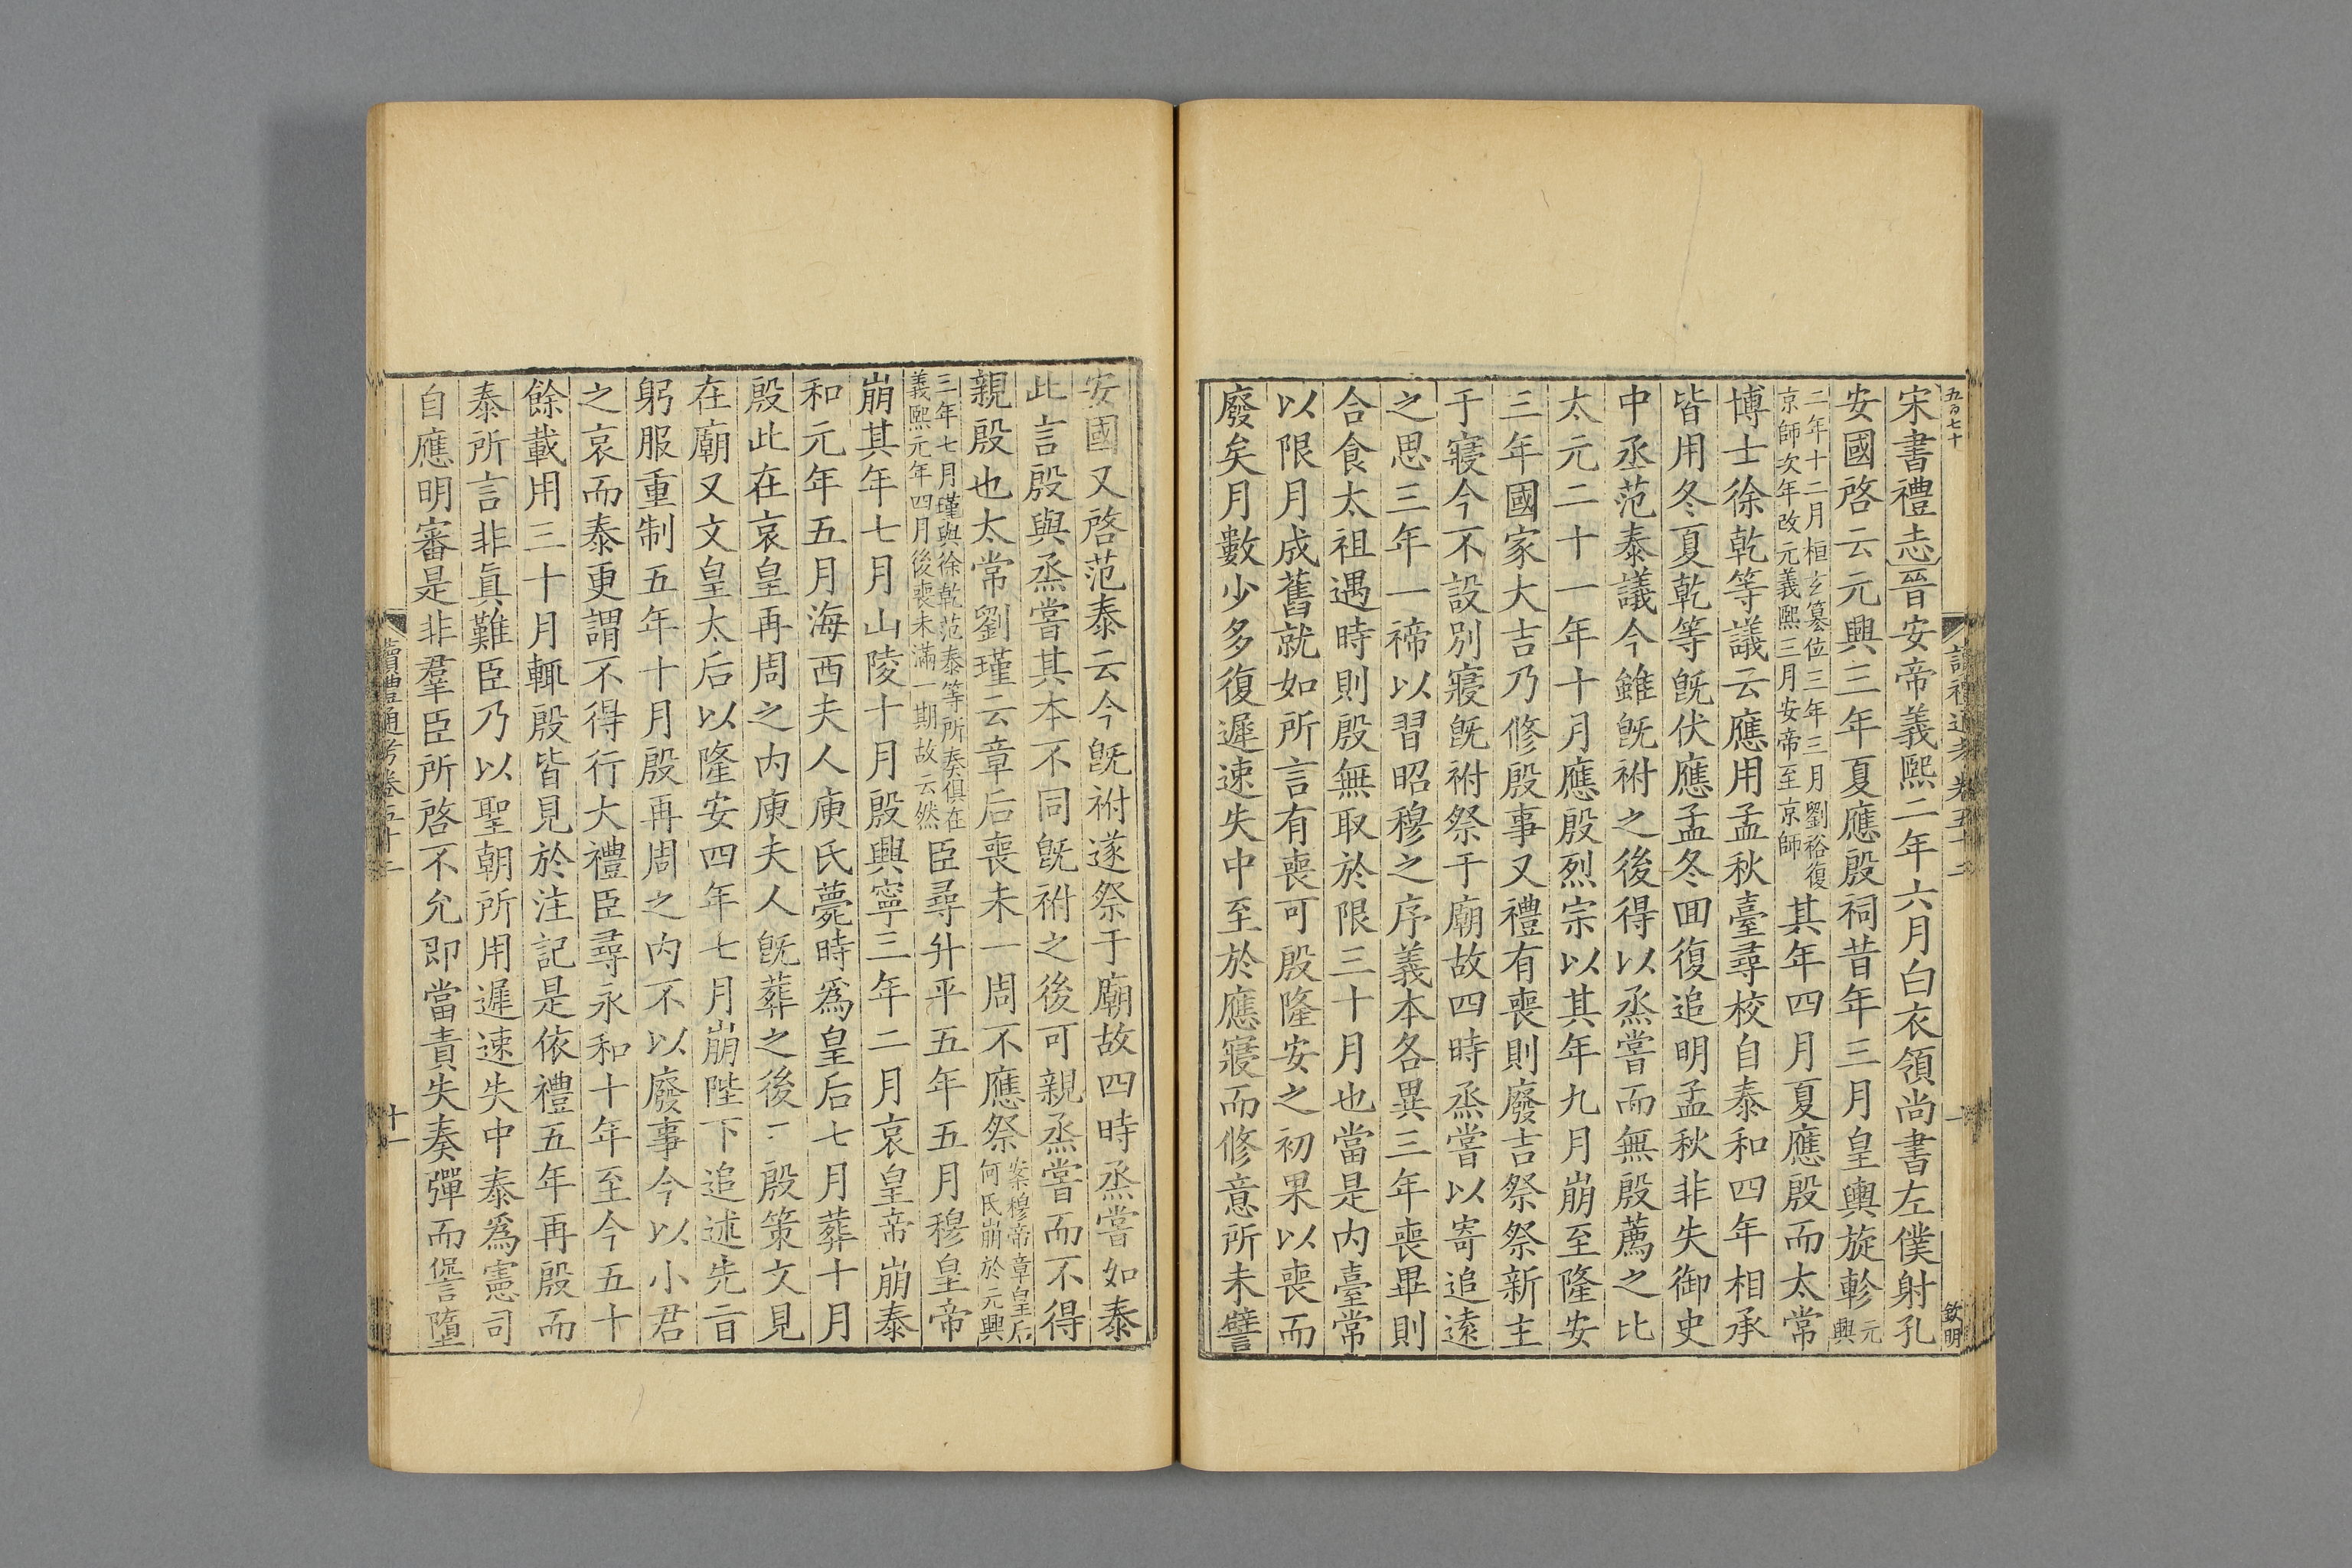 五百七十
宋書禮志晉安帝義熙二年六月白衣領尚書左僕射孔
安國啓云元興三年夏應殷祠昔年三月皇輿旋軫元興
二年十二月桓玄篡位三年三月劉裕復
京師次年改元義熙三月安帝至京師
其年四月夏應殷而太常
博士徐乾等議云應用孟秋臺尋校自泰和四年相承
皆用冬夏乾等旣伏應孟冬回復追明孟秋非失御史
中丞范泰議今雖旣祔之後得以烝嘗而無殷薦之比
太元二十一年十月應殷烈宗以其年九月崩至隆安
三年國家大吉乃修殷事又禮有喪則廢吉祭祭新主
于寢今不設別寢旣祔祭于廟故四時烝嘗以寄追遠
之思三年一禘以習昭穆之序義本各異三年喪畢則
合食太祖遇時則殷無取於限三十月也當是內臺常
以限月成舊就如所言有喪可殷隆安之初果以喪而
廢矣月數少多復遲速失中至於應寢而修意所未譬
欽明
安國又啓范泰云今旣祔遂祭于廟故四時烝嘗如泰
此言殷與烝嘗其本不同旣祔之後可親烝嘗而不得
親殷也太常劉瑾云章后喪未一周不應祭案穆帝章皇后
何氏崩於元興
三年七月瑾與徐乾范泰等所奏俱在
義熙元年四月後喪未滿一期故云然
臣尋升平五年五月穆皇帝
崩其年七月山陵十月殷興寧三年二月哀皇帝崩泰
和元年五月海西夫人庾氏薨時爲皇后七月葬十月
殷此在哀皇再周之內庾夫人旣葬之後二殷策文見
在廟又文皇太后以隆安四年七月崩陛下追述先旨
躬服重制五年十月殷再周之內不以廢事今以小君
之哀而泰更謂不得行大禮臣尋永和十年至今五十
餘載用三十月輒殷皆見於注記是依禮五年再殷而
泰所言非眞難臣乃以聖朝所用遲速失中泰爲憲司
自應明審是非羣臣所啓不允即當責失奏彈而㗖墮
讀禮通考卷五十二
十一